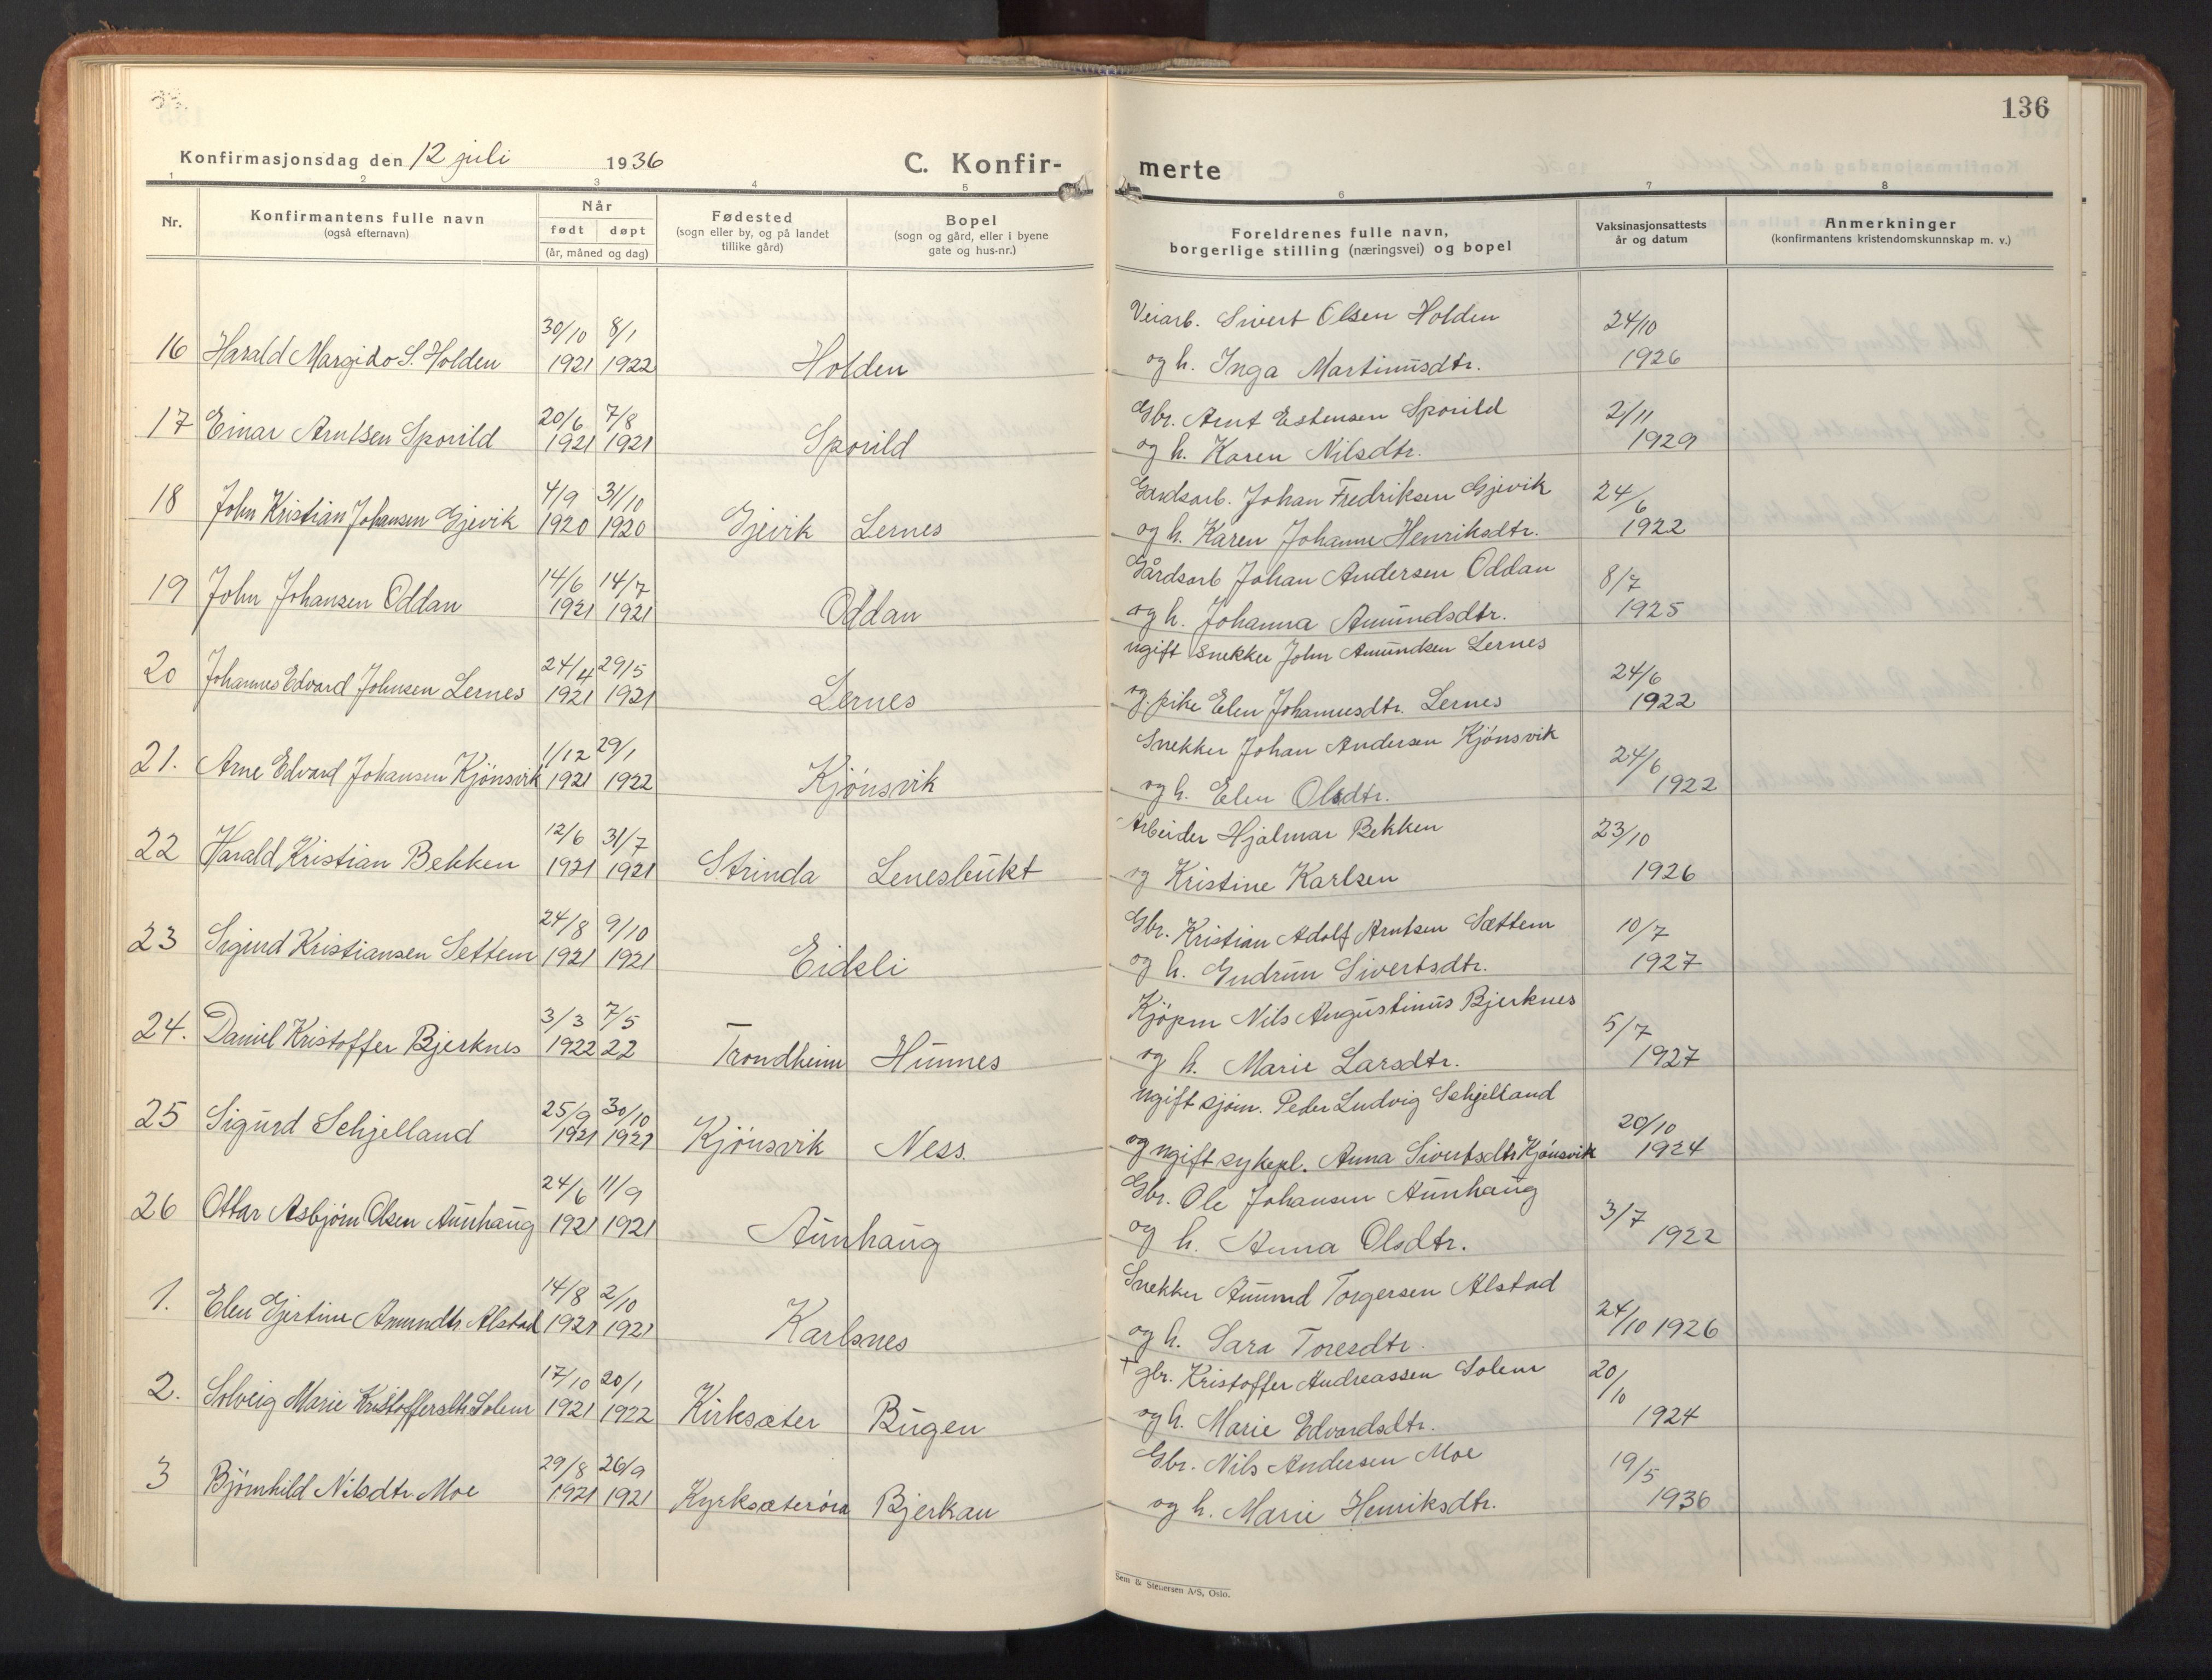 136
Konfirmasjonsdag den 12 juli 1936
C. Konfir-
merte
1 2 3 4 5 6 7 8
Nr.
Konfirmantens fulle navn
(også efternavn)
Når
født døpt
(år, måned og dag)
Fødested
(sogn eller by, og på landet
tillike gård)
Bopel
(sogn og gård, eller i byene
gate og hus-nr.)
Foreldrenes fulle navn,
borgerlige stilling (næringsvei) og bopel
Vaksinasjonsattests
år og datum
Anmerkninger
(konfirmantens kristendomskunnskap m. v.)
30/10 8/1 Veiarb. Sivert Olsen Holden 24/10
16 Harald Margido S. Holden 1921 1922 Holden og h. Inga Martinusdtr. 1926
20/6 7/8 Gbr. Arnt Estensen Sporild 2/11
17 Einar Arntsen Sporild 1921 1921 Sporild og h. Karen Nilsdtr. 1929
4/9 31/10 Gardsarb. Johan Fredriksen Gjevik 24/6
18 John Kristian Johansen Gjevik 1920 1920 Gjevik Lernes og h. Karen Johanne Henriksdtr. 1922
14/6 14/7 Gårdsarb Johan Andersen Oddan 8/7
19 John Johansen Oddan 1921 1921 Oddan og h. Johanna Amundsdtr. 1925
24/4 29/5 ugift snekker John Amundsen Lernes 24/6
20 Johannes Edvard Johnsen Lernes 1921 1921 Lernes og pike Elen Johannesdtr. Lernes 1922
1/12 29/1 Snekker Johan Andersen Kjönsvik 24/6
21. Arne Edvard Johansen Kjönsvik 1921 1922 Kjönsvik og h. Elen Olsdtr. 1922
12/6 31/7 Arbeider Hjalmar Bekken 23/10
22 Harald Kristian Bekken 1921 1921 Strinda Lenesbukt og Kristine Karlsen 1926
24/8 9/10 Gbr. Kristian Adolf Arntsen Sættem 10/7
23 Sigurd Kristiansen Settem 1921 1921 Eidsli og h. Gudrun Sivertsdtr. 1927
3/3 7/5 Kjöpm Nils Augustinus Bjerknes 5/7
24. Daniel Kristoffer Bjerknes 1922 22 Trondheim Hunnes og h. Marie Larsdtr. 1927
25/9 30/10 ugift sjöm. Peder Ludvig Schjelland 20/10
25 Sigurd Schjelland 1921 1921 Kjönsvik Ness. og ugift sykepl. Anna Sivertsdtr Kjönsvik 1924
24/6 11/9 Gbr. Ole Johansen Aunhaug 3/7
26 Ottar Asbjörn Olsen Aunhaug 1921 1921 Aunhaug og h. Anna Olsdtr. 1922
14/8 2/10 Snekker Amund Torgersen Alstad
1. Elen Gjertine Amundtr Alstad 1921 1921 Karlsnes og h. Sara Toresdtr. 24/10 1926
17/10 20/1 + gbr. Kristoffer Andreassen Solem 20/10
2. Solveig Marie Kristoffersdtr Solem 1921 1922 Kirksæter Bugen og h. Marie Edvardsdtr. 1924
29/8 26/9 Gbr. Nils Andersen Moe 19/5
3 Björnhild Nilsdtr Moe 1921 1921 Kyrksæteröra Bjerkan og h. Marie Henriksdtr. 1936
Sem & Stenersen A/S, Oslo.